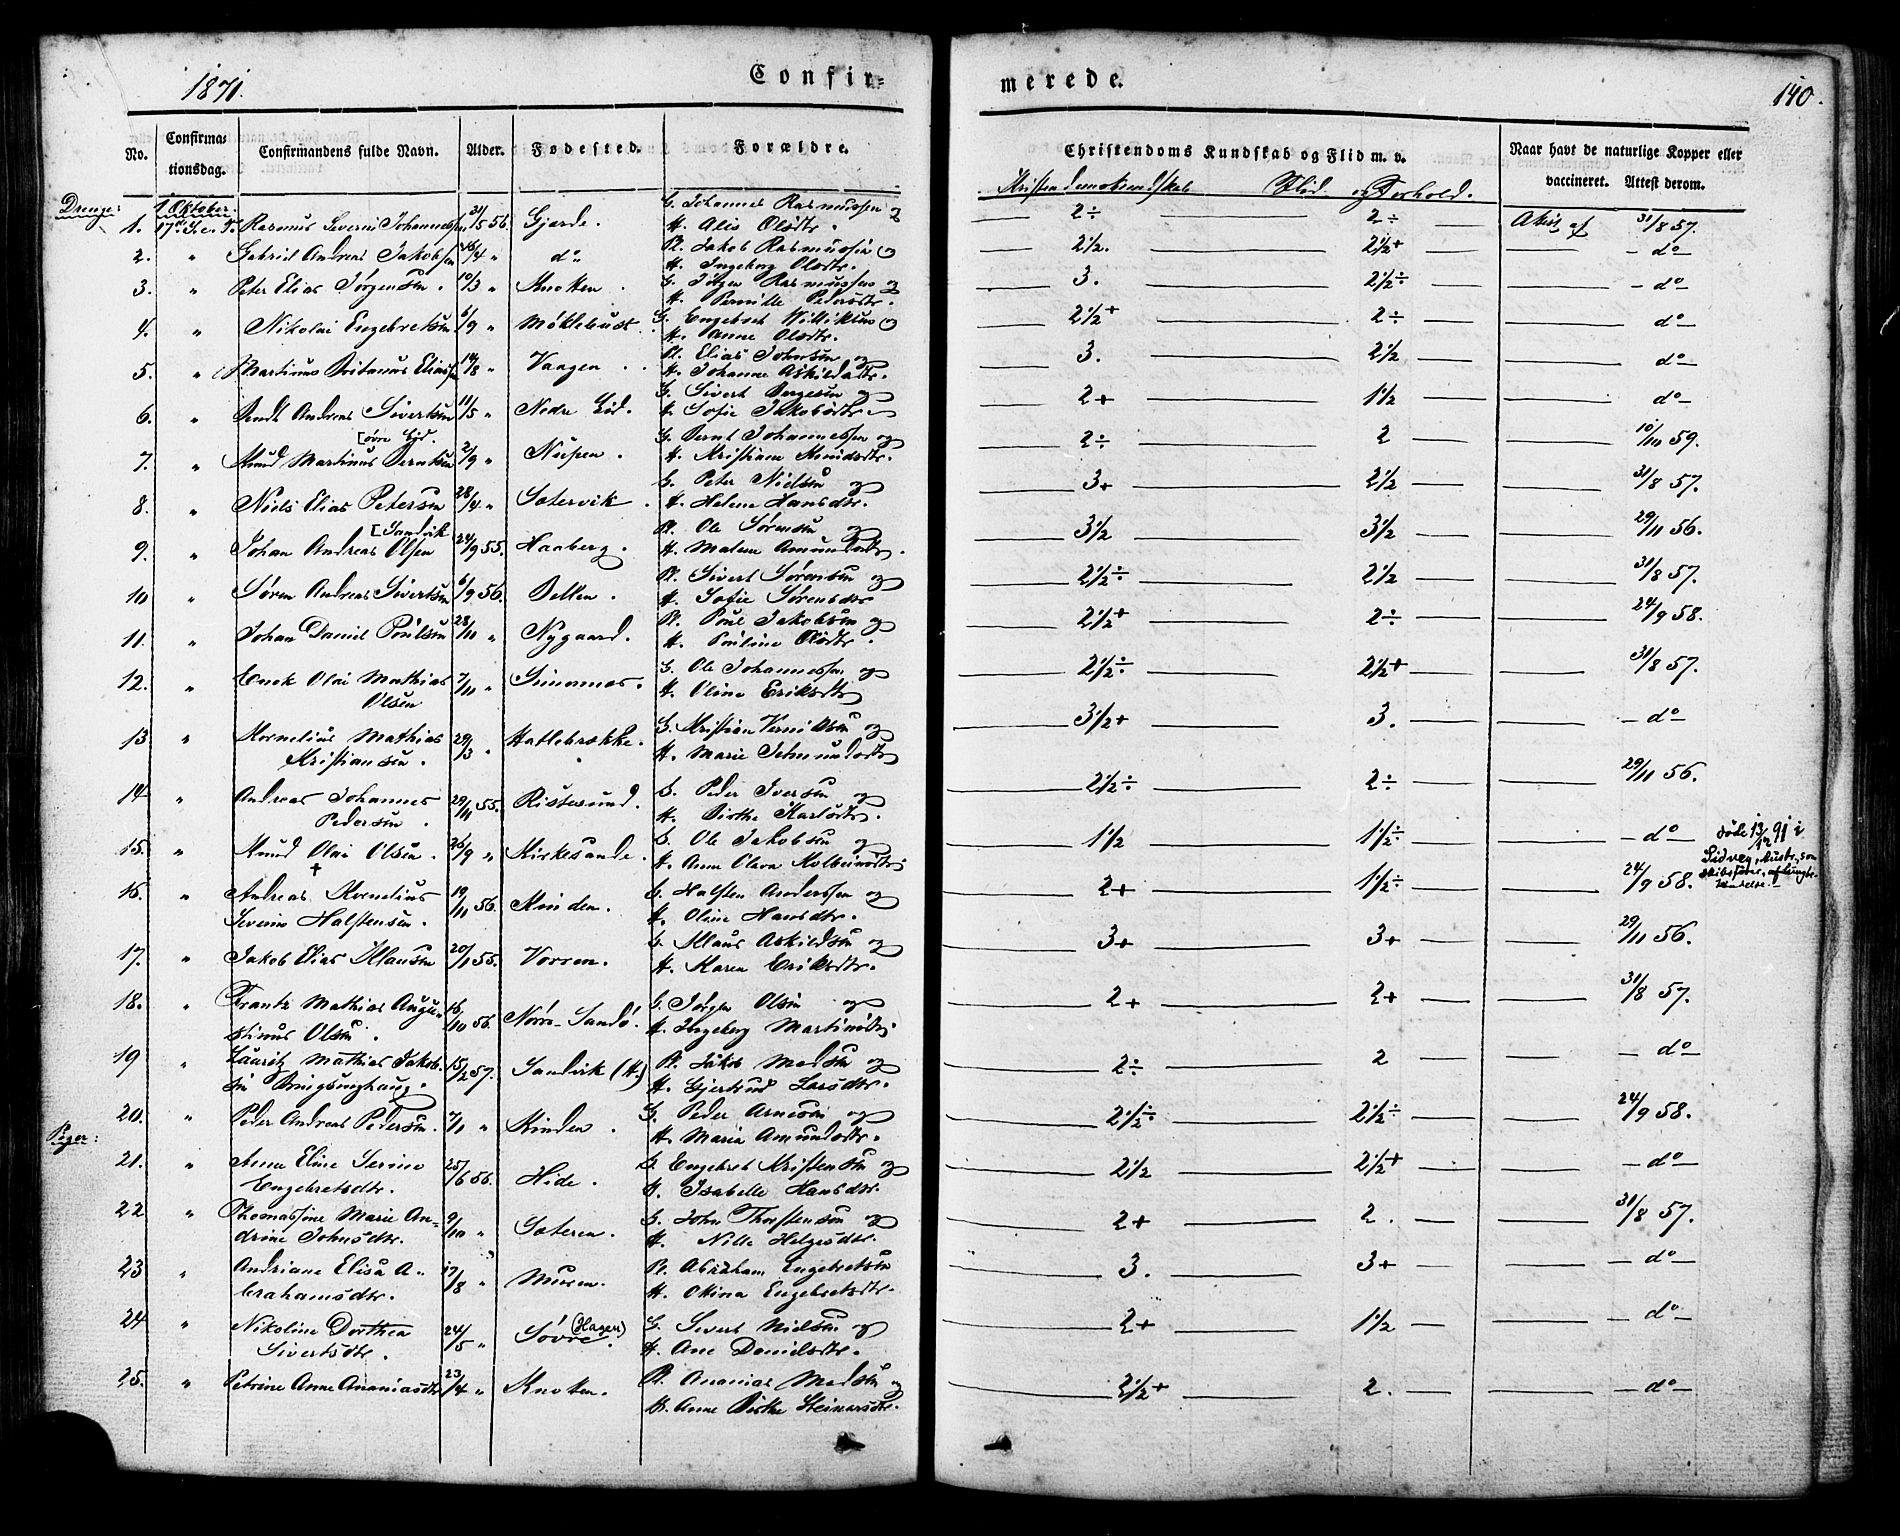 1871.
Confir-
merede.
140.
No.
Confirma-
tionsdag.
Confirmandens fulde Navn.
Alder.
Fødested.
Forældre.
Christendoms Kundskab og Flid m. v.
Naar havt de naturlige Kopper eller
vaccineret. Attest derom.
Kristendomskundskab Flid og Forhold.
Drenge:
1 Oktober
G. Johannes Rasmussen &
1. 17de S. e. T. Rasmus Severin Johannessen 21/5 56. Gjerde. H. Alis Olsdtr. 2÷ 2÷ Attest af 31/8 57.
Pl. Jakob Rasmussen og
2. " Gabriel Andreas Jakobsen 26/4 " do H. Ingeborg Olsdtr. 2½. 2½+ do
G. Jörgen Rasmussen og
3. " Peter Elias Jørgensen. 10/3 " Knotten. H. Pernille Pedersdtr. 3. 2½÷ do
G. Engebret Williksen og
4. " Nikolai Engebretsen 6/9 " Möklebust. H. Anne Olsdtr. 2½+ 2÷ do
Pl. Elias Johnsen og
5. " Martinus Eliassen 14/8 " Vaagen. H. Johanne Askildsdtr. 3. 2½ do
G. Sivert Børgesen og
6. " Arndt Andreas Sivertsen 11/5 " Nedre Eid. H. Sofie Jakobsdtr. 2+ 1½ do
[øvre Eid. G. Bernt Johannessen og
7. " Knud Martinus Berntsen 2/9 " Neipen. H. Kristiane Knudsdtr. 2÷ 2 10/10 59.
G. Peter Nielsen og
8. " Niels Elias Petersen 28/4 " Sætervik. H. Helene Hansdtr. 3+ 2½ 31/8 57.
[Sandvik Pl. Ole Sørensen og
9. " Johan Andreas Olsen 24/9 55. Haaberg. H. Malene Amundsdtr. 3½ 3½ 29/11 56.
Pl. Sivert Sørensen og
10 " Søren Andreas Sivertsen 6/9 56. Velten. H. Sofie Sørensdtr 2½÷ 2½ 31/8 57.
Pl. Poul Jakobsen og
11. " Johan Daniel Poulsen 28/10 " Nygaard. H. Pouline Olsdtr. 2½+ 2÷ 24/9 58.
G. Ole Johannessen og
12. " Enok Olai Mathias 7/11 " Sunnanes. 2½÷ 2½+ 31/8 57.
Olsen H. Oline Eriksdtr
13 " Kornelius Mathias 29/3 " Hatlebrække. G. Kristian Verniksen og 3½+ 3. do
Kristiansen. H. Marie Johnundsdtr
14 " Andreas Johannes 29/11 55. Ristesund. S. Peder Iversen og 2½÷ 2÷ 29/11 56.
Pedersen. H. Birthe Karlsdtr.
15. " Knud Olai Olsen. 26/9 " Kirkesande. S. Ole Jakobsen og 1½ 1½÷ do
† H. Anne Olava Kolbeinsdtr.
døde 13/12 91 i
Sidney, Austr., som
skibsfører, af lungebe-
tændelse.
16. " Andreas Kornelius 19/11 56. Kvinden. G. Halsten Anderssen og 2+ 1½÷ 24/9 58.
Severin Halstensen. H. Oline Hansdtr.
17. " Jakob Elias Klausen 20/1 55. Vorren. G. Klaus Askildsen og 3+ 3+ 29/11 56.
H. Karen Eriksdtr.
18. " Frantz Mathias Augu- 16/10 56. Nørre-Sandö. G. Jørgen Olsen og 2+ 2+ 31/8 57.
stinus Olsen. H. Ingeborg Martinsdtr.
19 " Lauritz Mathias Jakob- 15/2 57. Sandvik (H.) Pl. Jakob Madsen og 2÷ 2 do
sen Bringsinghaug. H. Gjertrud Larsdtr.
20. " Peder Andreas Pedersen. 7/1 " Kinden. G. Peder Arnesen og 2½÷ 2½÷ 24/9 58.
H. Maria Amundsdtr.
Piger:
21. " Anne Eline Serine 25/6 56. Hide. G. Engebret Kristensen og 2½ 2½+ do
Engebretsdtr. H. Isabelle Hansdtr.
22 " Thomassine Marie An- 9/10 " Sæteren. G. John Thorstensen og 2+ 2. 31/8 57.
drine Johnsdtr. H. Nille Helgesdtr.
23 " Andriane Elisa A- 17/8 " Muren. Pl. Abraham Engebretsen 3. 3+ do
brahamsdtr. H. Okina Engebretsdtr.
24 " Nikoline Dorthea 24/5 " Søvre (Hagen). G. Sivert Nielsen og 2+ 1½ do
Sivertsdtr. H. Ane Danielsdtr.
25. " Petrine Anne Ananiasdtr 23/4 " Knotten. Pl. Ananias Madsen og 2½+ 2. do
H. Anne Birthe Steinarsdtr.